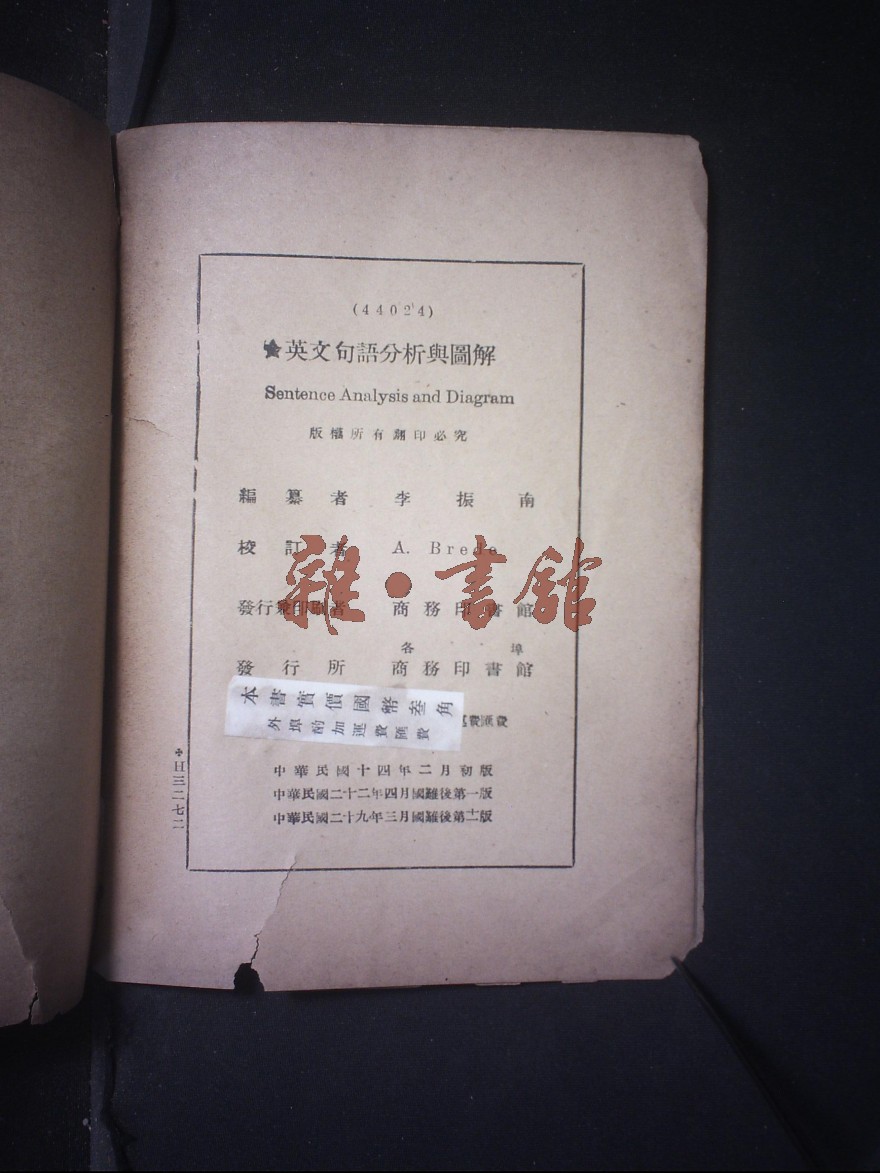 (44024)
★英文句語分析與圖解
Sentence Analysis and Diagram
版權所有翻印必究
編纂者 李振南
校訂者 A. Brede
發行兼印刷者 商務印書館
各埠
發行所 商務印書館
本書實價國幣叁角
外埠酌加運費匯費
運費匯費
中華民國十四年二月初版
中華民國二十二年四月國難後第一版
中華民國二十九年三月國難後第十二版
H三二七二
雜·書館